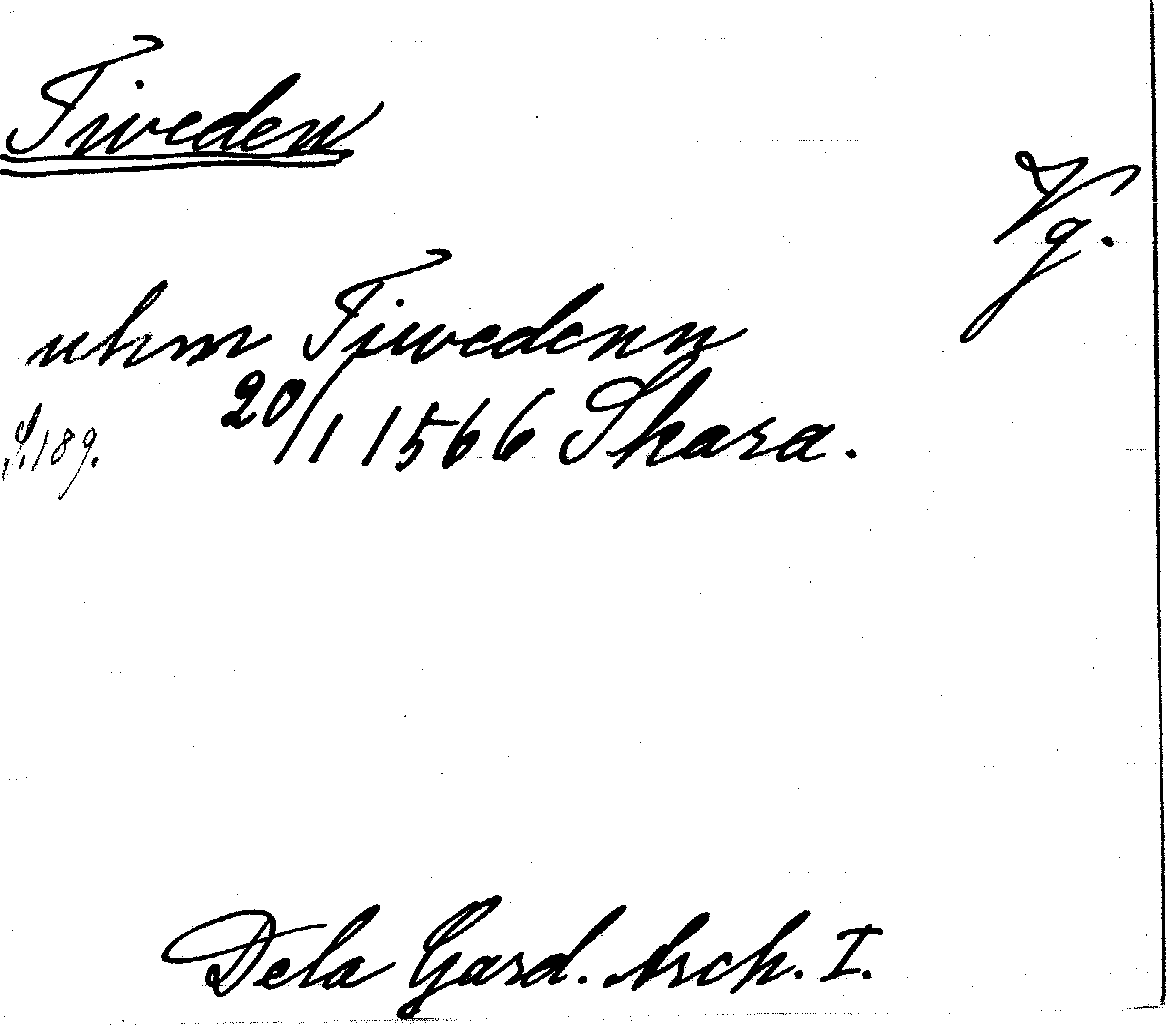 Tiweden
Vg.
uhm Tiwedenn
20/1 1566 Skara.
S. 189.
Dela Gard. Arch. I.